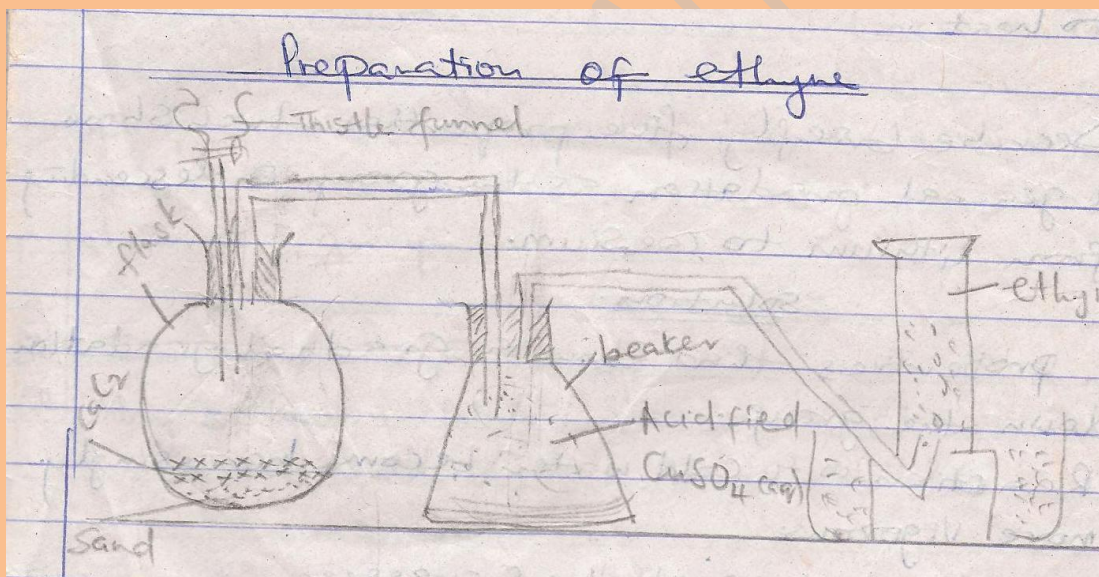 to heat
Preparation of ethyne
Thistle funnel
flask
ethy
beaker
Acidified
CuSO4 (aq)
Sand